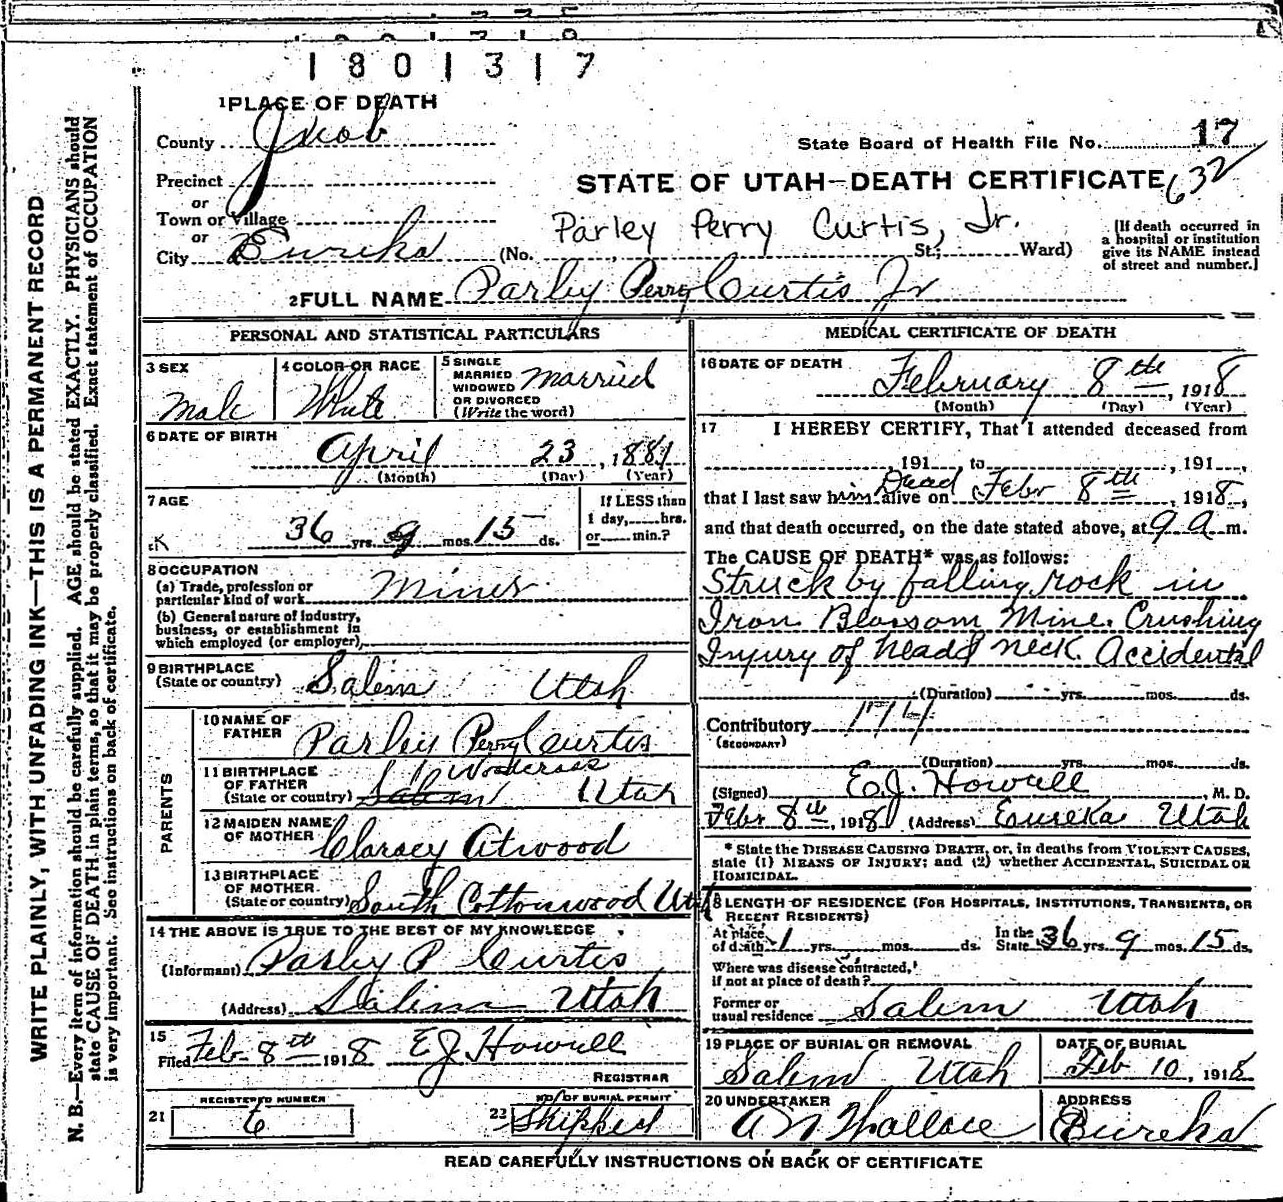 1801317
1 PLACE OF DEATH
County Juab
State Board of Health File No. 17
Precinct
632
STATE OF UTAH—DEATH CERTIFICATE
or
Town or Village
or
City Eureka
Parley Perry Curtis, Jr.
(No. St; Ward)
[If death occurred in
a hospital or institution
give its NAME instead
of street and number.]
2 FULL NAME Parley Perry Curtis Jr
PERSONAL AND STATISTICAL PARTICULARS
3 SEX
Male
4 COLOR OR RACE
White
5 SINGLE
MARRIED
WIDOWED
OR DIVORCED
(Write the word)
Married
6 DATE OF BIRTH
April 23, 1881
(Month) (Day) (Year)
7 AGE
36 yrs. 9 mos. 15 ds.
If LESS than
1 day, hrs.
or min.?
8 OCCUPATION
(a) Trade, profession or
particular kind of work Miner
(b) General nature of Industry,
business, or establishment in
which employed (or employer)
9 BIRTHPLACE
(State or country) Salem Utah
PARENTS
10 NAME OF
FATHER Parley Perry Curtis
11 BIRTHPLACE
OF FATHER
(State or country) Salem Utah
12 MAIDEN NAME
OF MOTHER Claracy Atwood
13 BIRTHPLACE
OF MOTHER
(State or country) South Cottonwood Utah
14 THE ABOVE IS TRUE TO THE BEST OF MY KNOWLEDGE
(Informant) Parley P Curtis
(Address) Salem Utah
15
Filed Feb 8th, 1918 E J Howell
REGISTRAR
REGISTERED NUMBER
21 6
NO. OF BURIAL PERMIT
22 Shipped
MEDICAL CERTIFICATE OF DEATH
16 DATE OF DEATH
February 8th, 1918
(Month) (Day) (Year)
17 I HEREBY CERTIFY, That I attended deceased from
191 to , 191 ,
Dead
that I last saw him alive on Febr 8th, 1918,
and that death occurred, on the date stated above, at 9 a m.
The CAUSE OF DEATH* was as follows:
Struck by falling rock in
Iron Blossom Mine. Crushing
Injury of head & neck Accidental
(Duration) yrs. mos. ds.
Contributory 174
(SECONDARY)
(Duration) yrs. mos. ds.
(Signed) E.J. Howell, M. D.
Febr 8th, 1918 (Address) Eureka Utah
* State the DISEASE CAUSING DEATH, or, in deaths from VIOLENT CAUSES,
state (1) MEANS OF INJURY; and (2) whether ACCIDENTAL, SUICIDAL OR
HOMICIDAL.
18 LENGTH OF RESIDENCE (FOR HOSPITALS, INSTITUTIONS, TRANSIENTS, OR
RECENT RESIDENTS)
At place
of death 1 yrs. mos. ds.
In the
State 36 yrs. 9 mos. 15 ds.
Where was disease contracted,
if not at place of death?
Former or
usual residence Salem Utah
19 PLACE OF BURIAL OR REMOVAL
Salem Utah
DATE OF BURIAL
Feb 10, 1918
20 UNDERTAKER
A N Wallace
ADDRESS
Eureka
READ CAREFULLY INSTRUCTIONS ON BACK OF CERTIFICATE
WRITE PLAINLY, WITH UNFADING INK—THIS IS A PERMANENT RECORD
N. B.—Every item of information should be carefully supplied. AGE should be stated EXACTLY. PHYSICIANS should
state CAUSE OF DEATH in plain terms, so that it may be properly classified. Exact statement of OCCUPATION
is very important. See instructions on back of certificate.